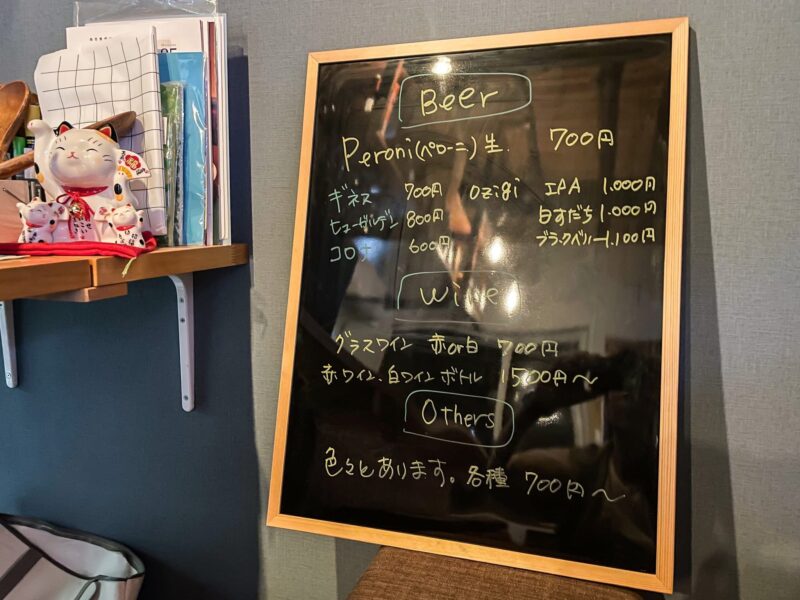 Beer
Peroni(ペローニ)生. 700円
ギネス 700円 Ozigi IPA 1.000円
ヒューガルデン 800円 白すだち 1.000円
コロナ 600円 ブラックベリー 1.100円
Wine
グラスワイン 赤or白 700円
赤ワイン、白ワイン ボトル 1500円〜
Others
色々とあります。各種 700円〜